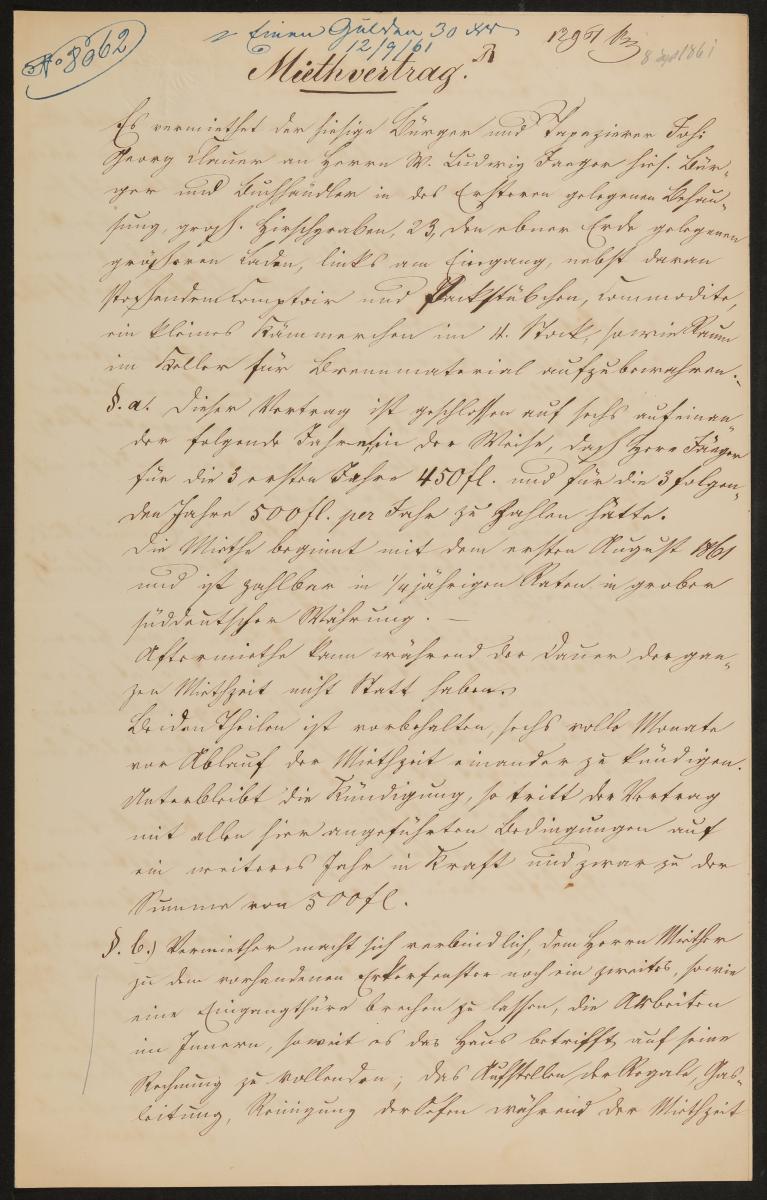 No 8062
Einen Gulden 30 xr
12/9/61
1296
8 Sept 1861
Miethvertrag.
Es vermiethet der hiesige Bürger und Tapezierer Joh:
Georg Clauer an Herrn W. Ludwig Jaeger hies. Bür-
ger und Buchhändler in des Ersteren gelegenen Behau-
sung, groß. Hirschgraben, 23, den ebner Erde gelegenen
größeren Laden, links am Eingang, nebst daran
stoßendem Comptoir und Packstübchen, Commodite,
ein kleines Kämmerchen im 4. Stock, sowie Raum
im Keller für Brennmaterial aufzubewahren.
§. a. Dieser Vertrag ist geschlossen auf sechs aufeinan-
der folgende Jahre, in der Weise, daß Herr Jäeger
für die 3 ersten Jahre 450 fl. und für die 3 folgen-
den Jahre 500 fl. per Jahr zu zahlen hätte.
Die Miethe beginnt mit dem ersten August 1861
und ist zahlbar in 1/4 jährigen Raten in grober
süddeutscher Währung. —
Aftermiethe kann während der Dauer der gan-
zen Miethzeit nicht Statt haben.
Beiden Theilen ist vorbehalten, sechs volle Monate
vor Ablauf der Miethzeit einander zu kündigen.
Unterbleibt die Kündigung, so tritt der Vertrag
mit allen hier angeführten Bedingungen auf
ein weiteres Jahr in Kraft und zwar zu der
Summe von 500 fl.
§. b.) Vermiether macht sich verbindlich, dem Herrn Miether
zu dem vorhandenen Erkerfenster noch ein zweites, sowie
eine Eingangthüre brechen zu lassen, die Arbeiten
im Innern, soweit es das Haus betrifft, auf seine
Rechnung zu vollenden; das Aufstellen der Regale, Gas-
leitung, Reinigung der Oefen während der Miethzeit